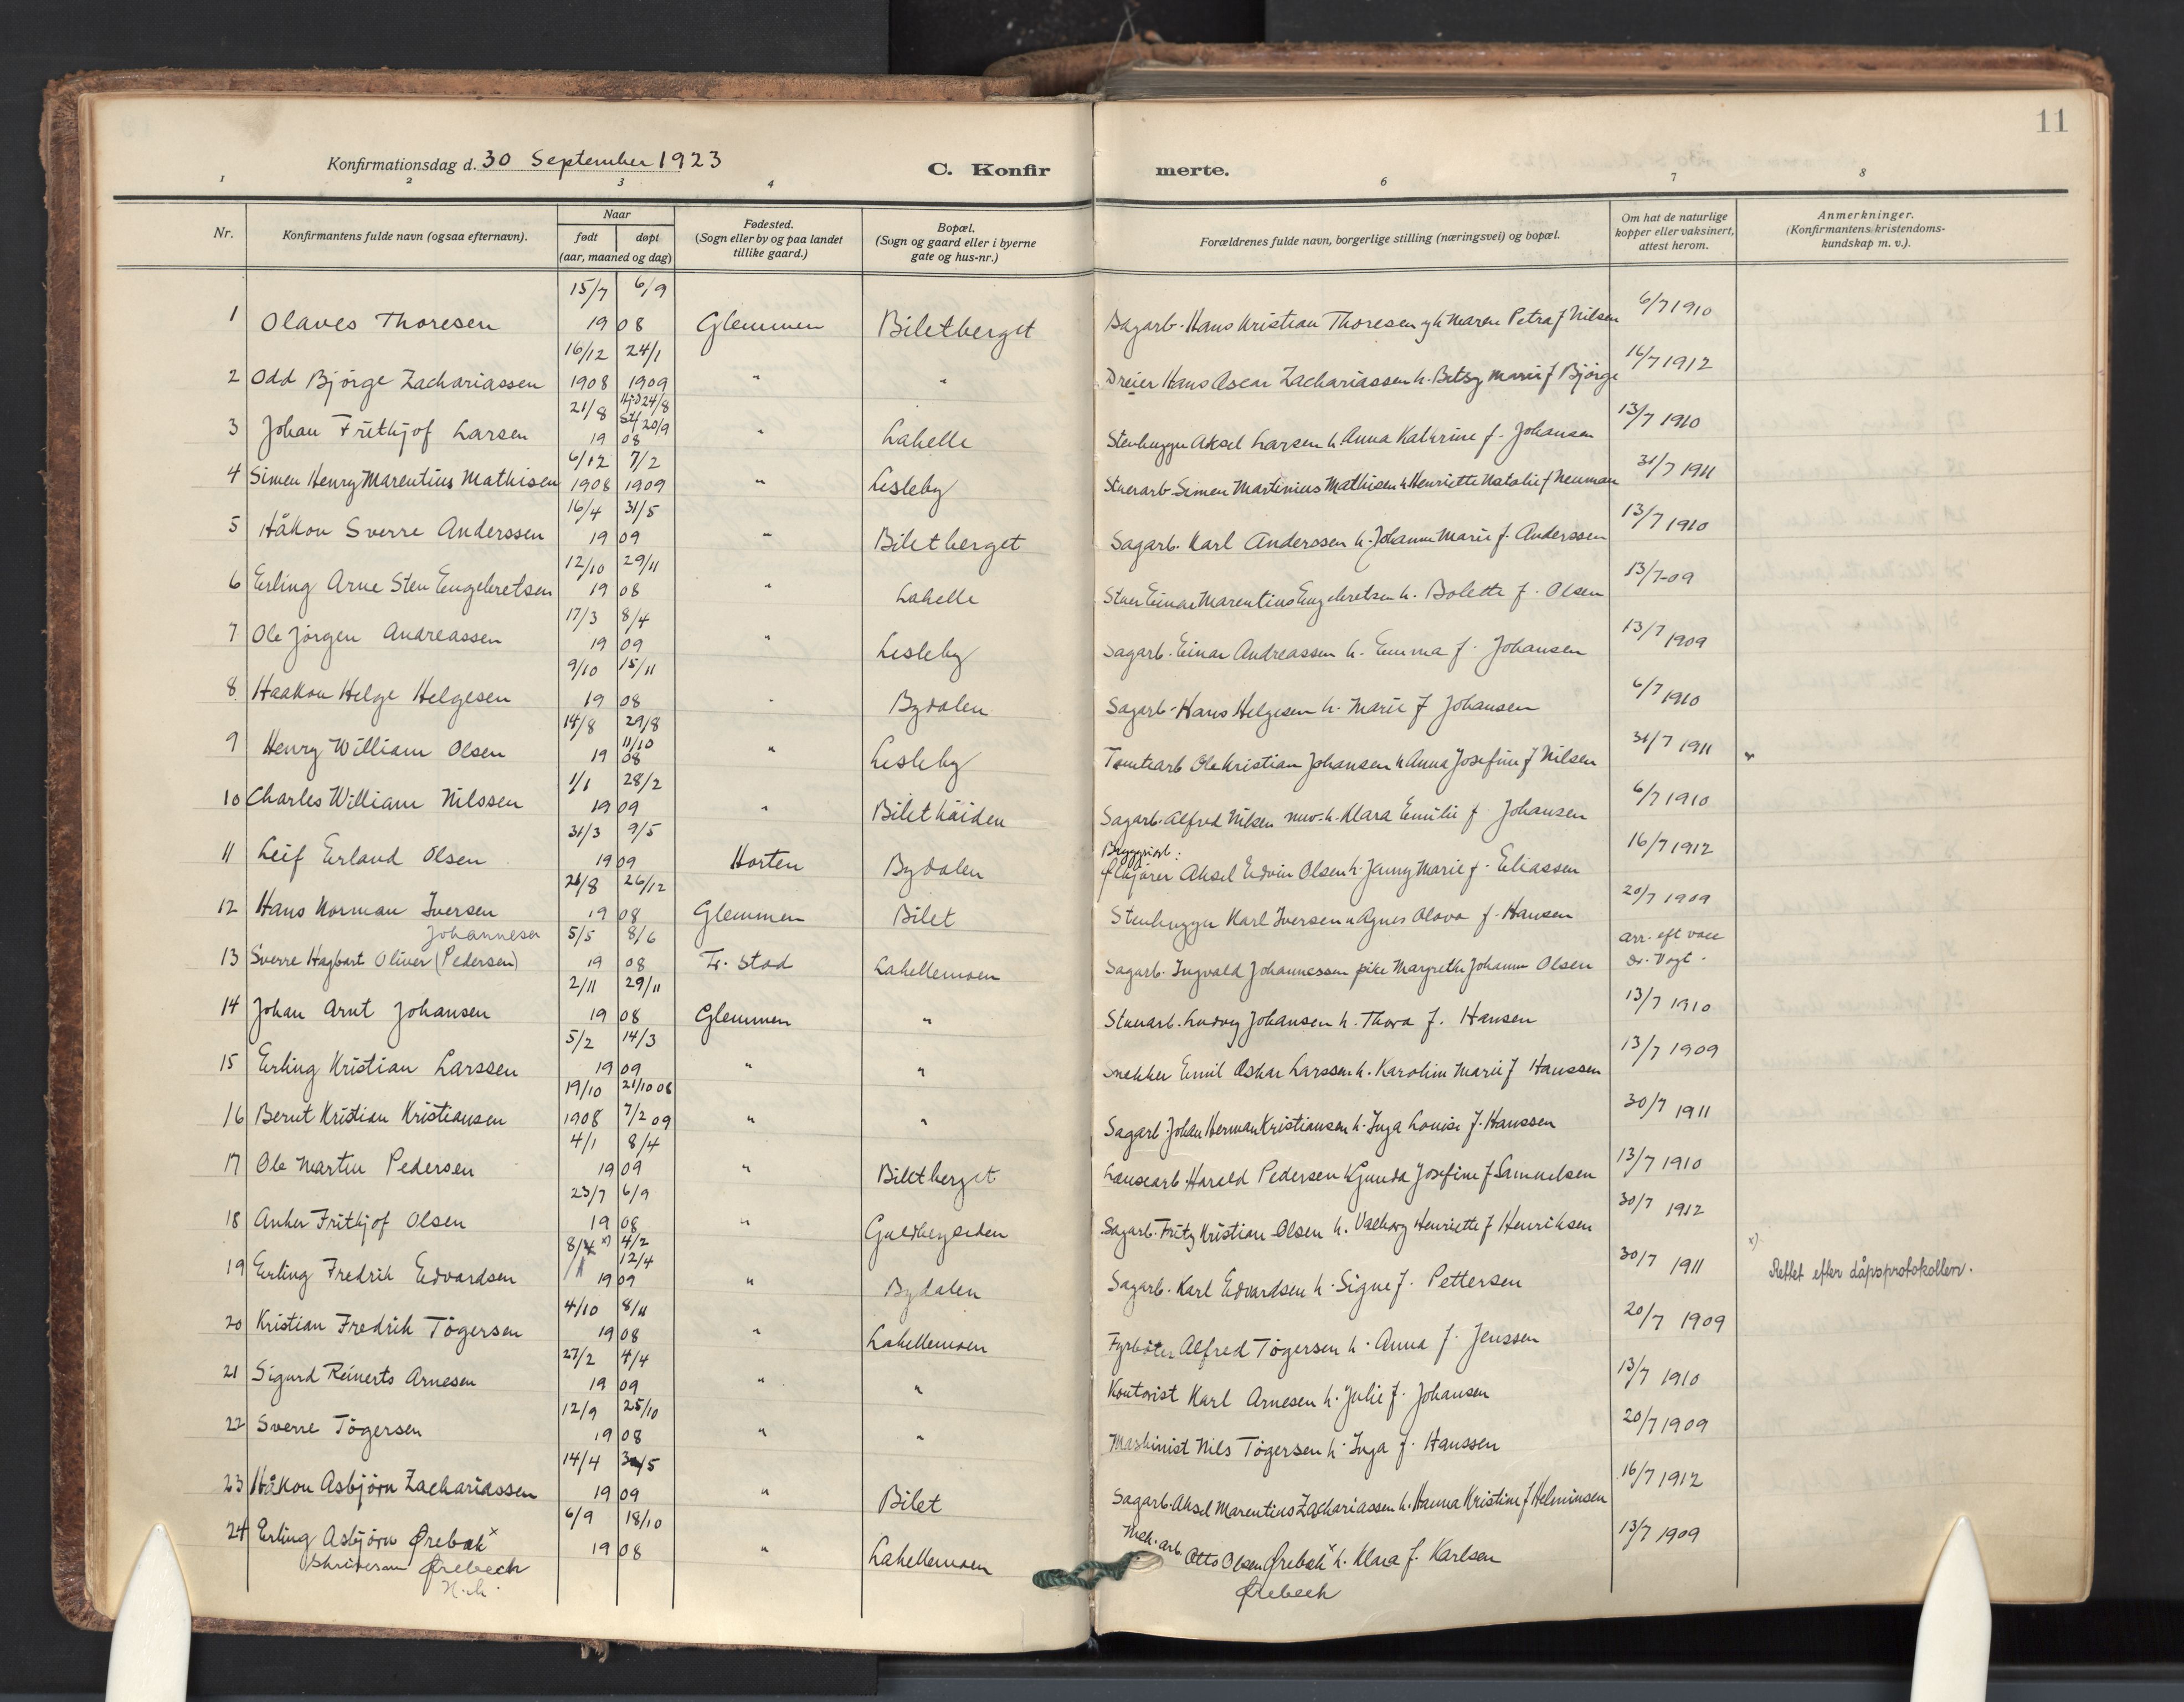 11
Konfirmationsdag d. 30 September 1923
C. Konfir merte.
1 2 3 4 6 7 8
Nr. Konfirmantens fulde navn (ogsaa efternavn). Naar født døpt (aar, maaned og dag) Fødested. (Sogn eller by og paa landet tillike gaard.) Bopæl. (Sogn og gaard eller i byerne gate og hus-nr.) Forældrenes fulde navn, borgerlige stilling (næringsvei) og bopæl. Om hat de naturlige kopper eller vaksinert, attest herom. Anmerkninger. (Konfirmantens kristendoms-kundskap m. v.).
1 Olaves Thoresen 15/7 6/9 1908 Glemmen Biletberget Sagarb. Hans Kristian Thoresen og h. Maren Petra f Nilsen 6/7 1910
2 Odd Bjørge Zachariassen 16/12 1908 24/1 1909 " " Dreier Hans Oscar Zachariassen h. Betsy Marie f Bjørge 16/7 1912
3 Johan Frithjof Larsen 21/8 Hjd 24/8 Stf 20/9 1908 " Lahelle Stenhugger Aksel Larsen h. Anna Kathrine f. Johansen 13/7 1910
4 Simen Henry Marentius Mathisen 6/12 1908 7/2 1909 " Lisleby Stuerarb Simen Martinius Mathisen h Henriette Natalie f Neuman 31/7 1911
5 Håkon Sverre Anderssen 16/4 31/5 1909 " Biletberget Sagarb. Karl Anderssen h. Johanne Marie f. Anderssen 13/7 1910
6 Erling Arne Sten Engebretsen 12/10 29/11 1908 " Lahelle Stuer Einar Marentius Engebretsen h. Bolette f. Olsen 13/7-09
7 Ole Jörgen Andreassen 17/3 8/4 1909 " Lisleby Sagarb. Einar Andreassen h. Emma f. Johansen 13/7 1909
8 Haakon Helge Helgesen 9/10 15/11 1908 " Bydalen Sagarb. Hans Helgesen h. Marie f Johansen 6/7 1910
9 Henry William Olsen 14/8 29/8 11/10 1908 " Lisleby Tomtearb Ole Kristian Johansen h Anna Josefine f Nilsen 31/7 1911
10 Charles William Nilssen 1/1 28/2 1909 " Bilethöiden Sagarb. Alfred Nilsen h. Klara Emilie f Johansen 6/7 1910
11 Leif Erland Olsen 31/3 9/5 1909 Horten Bydalen Bryggeriarb: Aksel Edvin Olsen h. Janny Marie f. Eliassen 16/7 1912
12 Hans Norman Iversen 21/8 26/12 1908 Glemmen Bilet Stenhugger Karl Iversen h Agnes Olava f. Hansen 20/7 1909
Johannesen
13 Sverre Hagbart Oliver (Pedersen) 5/5 8/6 1908 Fr. stad Lahellemoen Sagarb. Ingvald Johannessen pike Margrethe Johanne Olsen arr. eft vacc dr. Vogt.
14 Johan Arnt Johansen 2/11 29/11 1908 Glemmen " Stuearb. Ludvig Johansen h. Thora f. Hansen 13/7 1910
15 Erling Kristian Larssen 5/2 14/3 1909 " " Snekker Emil Oskar Larssen h. Karoline Marie f Hanssen 13/7 1909
16 Bernt Kristian Kristiansen 19/10 1908 21/10 08 7/2 09 " " Sagarb. Johan Herman Kristiansen h. Inga Louise f. Hanssen 30/7 1911
17 Ole Martin Pedersen 4/1 8/4 1909 " Biletberget Lansearb. Harald Pedersen h Gunda Josefine f Samuelsen 13/7 1910
18 Anker Frithjof Olsen 23/7 6/9 1908 " Guldbergsiden Sagarb. Fritz Kristian Olsen h. Valborg Henriette f Henriksen 30/7 1912
19 Erling Fredrik Edvardsen 8/4 x) 4/2 12/4 1909 " Bydalen Sagarb. Karl Edvardsen h. Signe f. Pettersen 30/7 1911 x) Rettet efter dåpsprotokollen.
20 Kristian Fredrik Tögersen 4/10 8/11 1908 " Lahellemoen Fyrböter Alfred Tögersen h. Anna f. Jenssen 20/7 1909
21 Sigurd Reinerts Arnesen 27/2 4/4 1909 " " Kontorist Karl Arnesen h. Julie f. Johansen 13/7 1910
22 Sverre Tögersen 12/9 25/10 1908 " " Maskinist Nils Tögersen h. Inga f. Hanssen 20/7 1909
23 Håkon Asbjörn Zachariassen 14/4 30/5 1909 " Bilet Sagarb. Aksel Marentius Zachariassen h. Hanna Kristine f Helminsen 16/7 1912
24 Erling Asbjörn Ørebæk x 6/9 18/10 1908 " Lahellemoen Mek. arb. Otto Olsen Ørebæk x h. Klara f. Karlsen 13/7 1909
Skrives Ørebech Ørebech